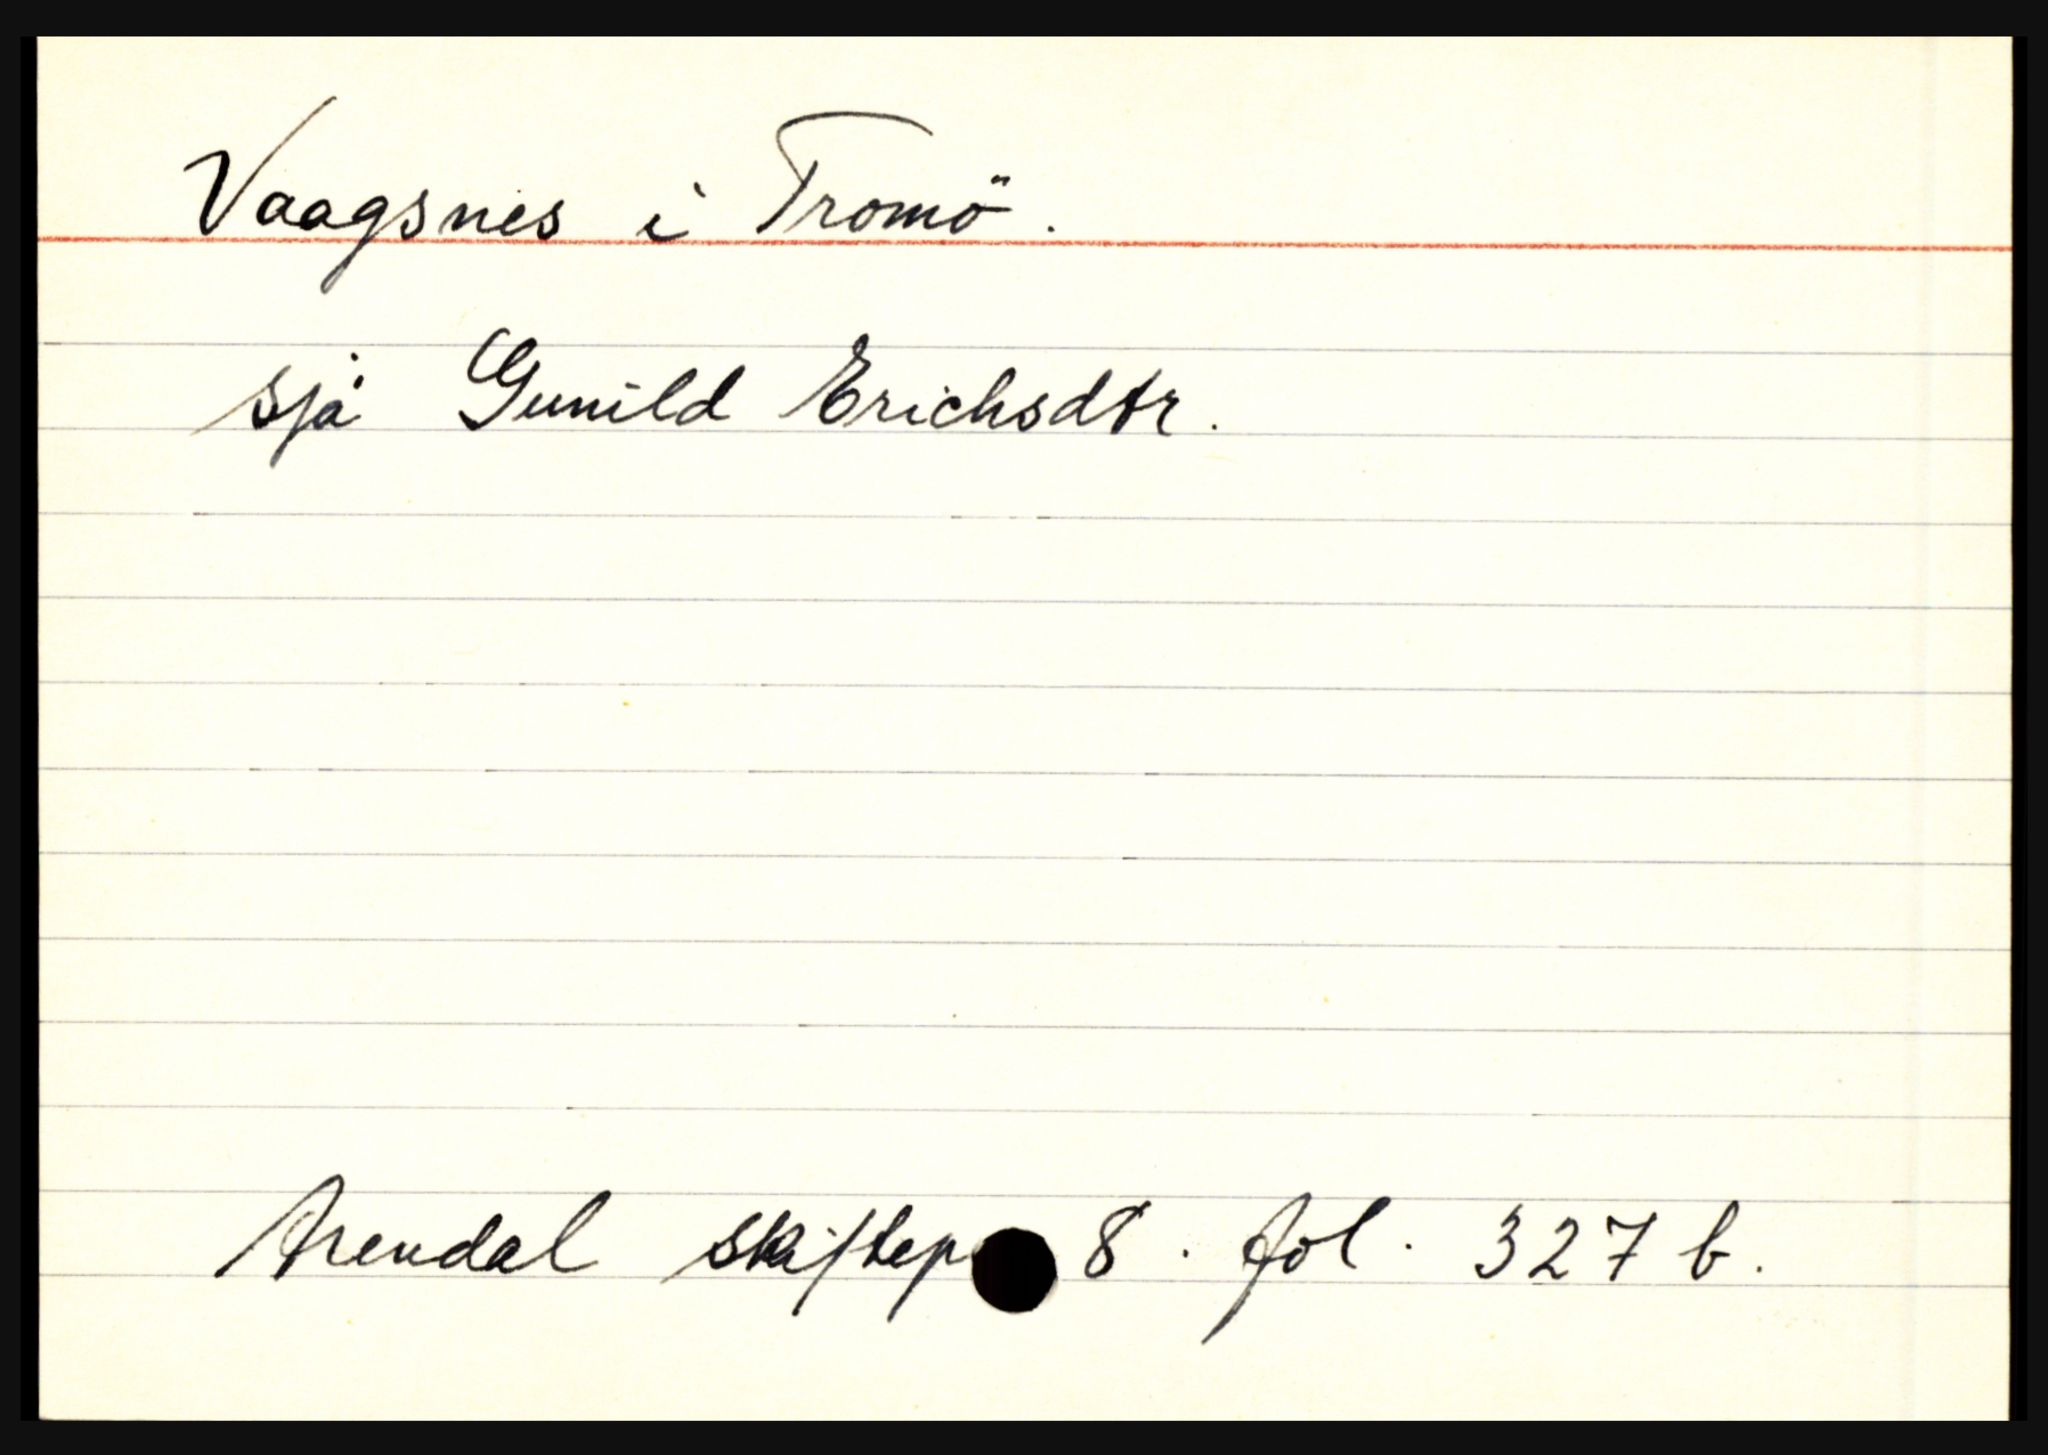 Vaagsnes i Tromö.
sjå Gunild Erichsdtr.
Arendal skiftep 8. fol. 327 b.